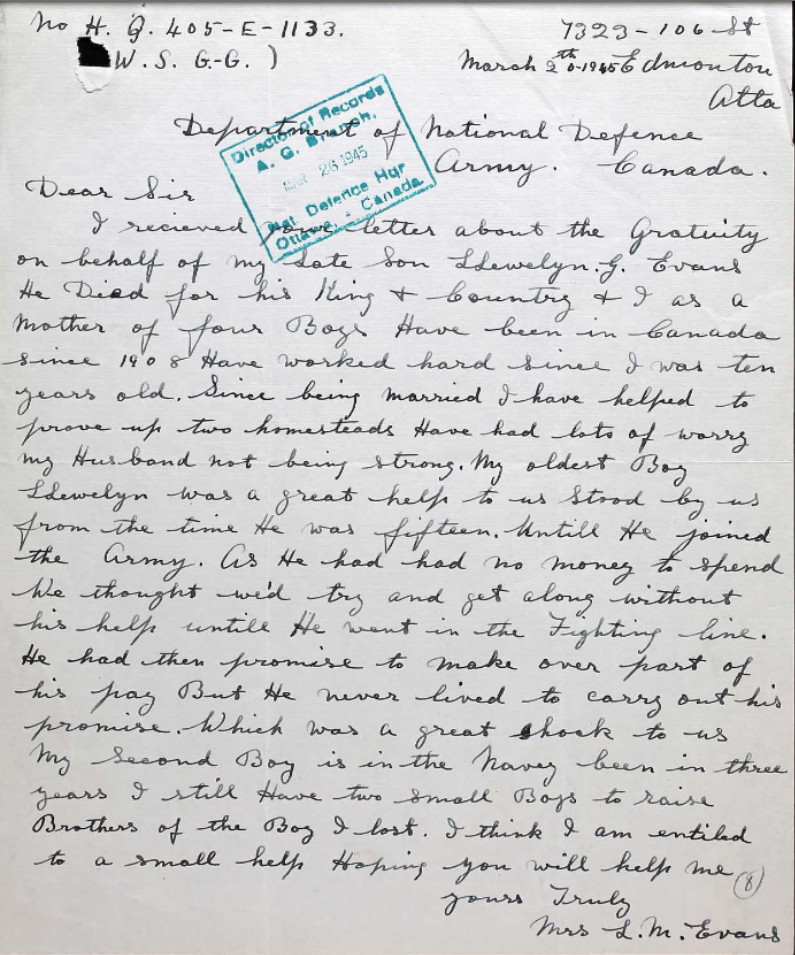 No H. Q. 405-E-1133.
W. S. G.-G. )
7323-106 St
March 20th-1945 Edmonton
Alta
Department of National Defence
Army. Canada.
Director of Records
A. G. Branch.
MAR 26 1945
Nat. Defence Hqr
Ottawa, - Canada
Dear Sir
I recieved your letter about the Gratuity
on behalf of my Late Son LLewelyn. G. Evans
He Died for his King & Country & I as a
Mother of four Boys Have been in Canada
since 1908 Have worked hard since I was ten
years old. Since being married I have helped to
prove up two homesteads Have had lots of worry
my Husband not being strong. My oldest Boy
LLewelyn was a great help to us Stood by us
from the time He was fifteen. Untill He joined
the Army. As He had had no money to spend
We thought we'd try and get along without
his help untill He went in the Fighting line.
He had then promise to make over part of
his pay But He never lived to carry out his
promise. Which was a great shock to us
My Second Boy is in the Navey been in three
years I still Have two small Boys to raise
Brothers of the Boy I lost. I think I am entiled
to a small help Hoping you will help me
(8)
yours Truly
Mrs L. M. Evans